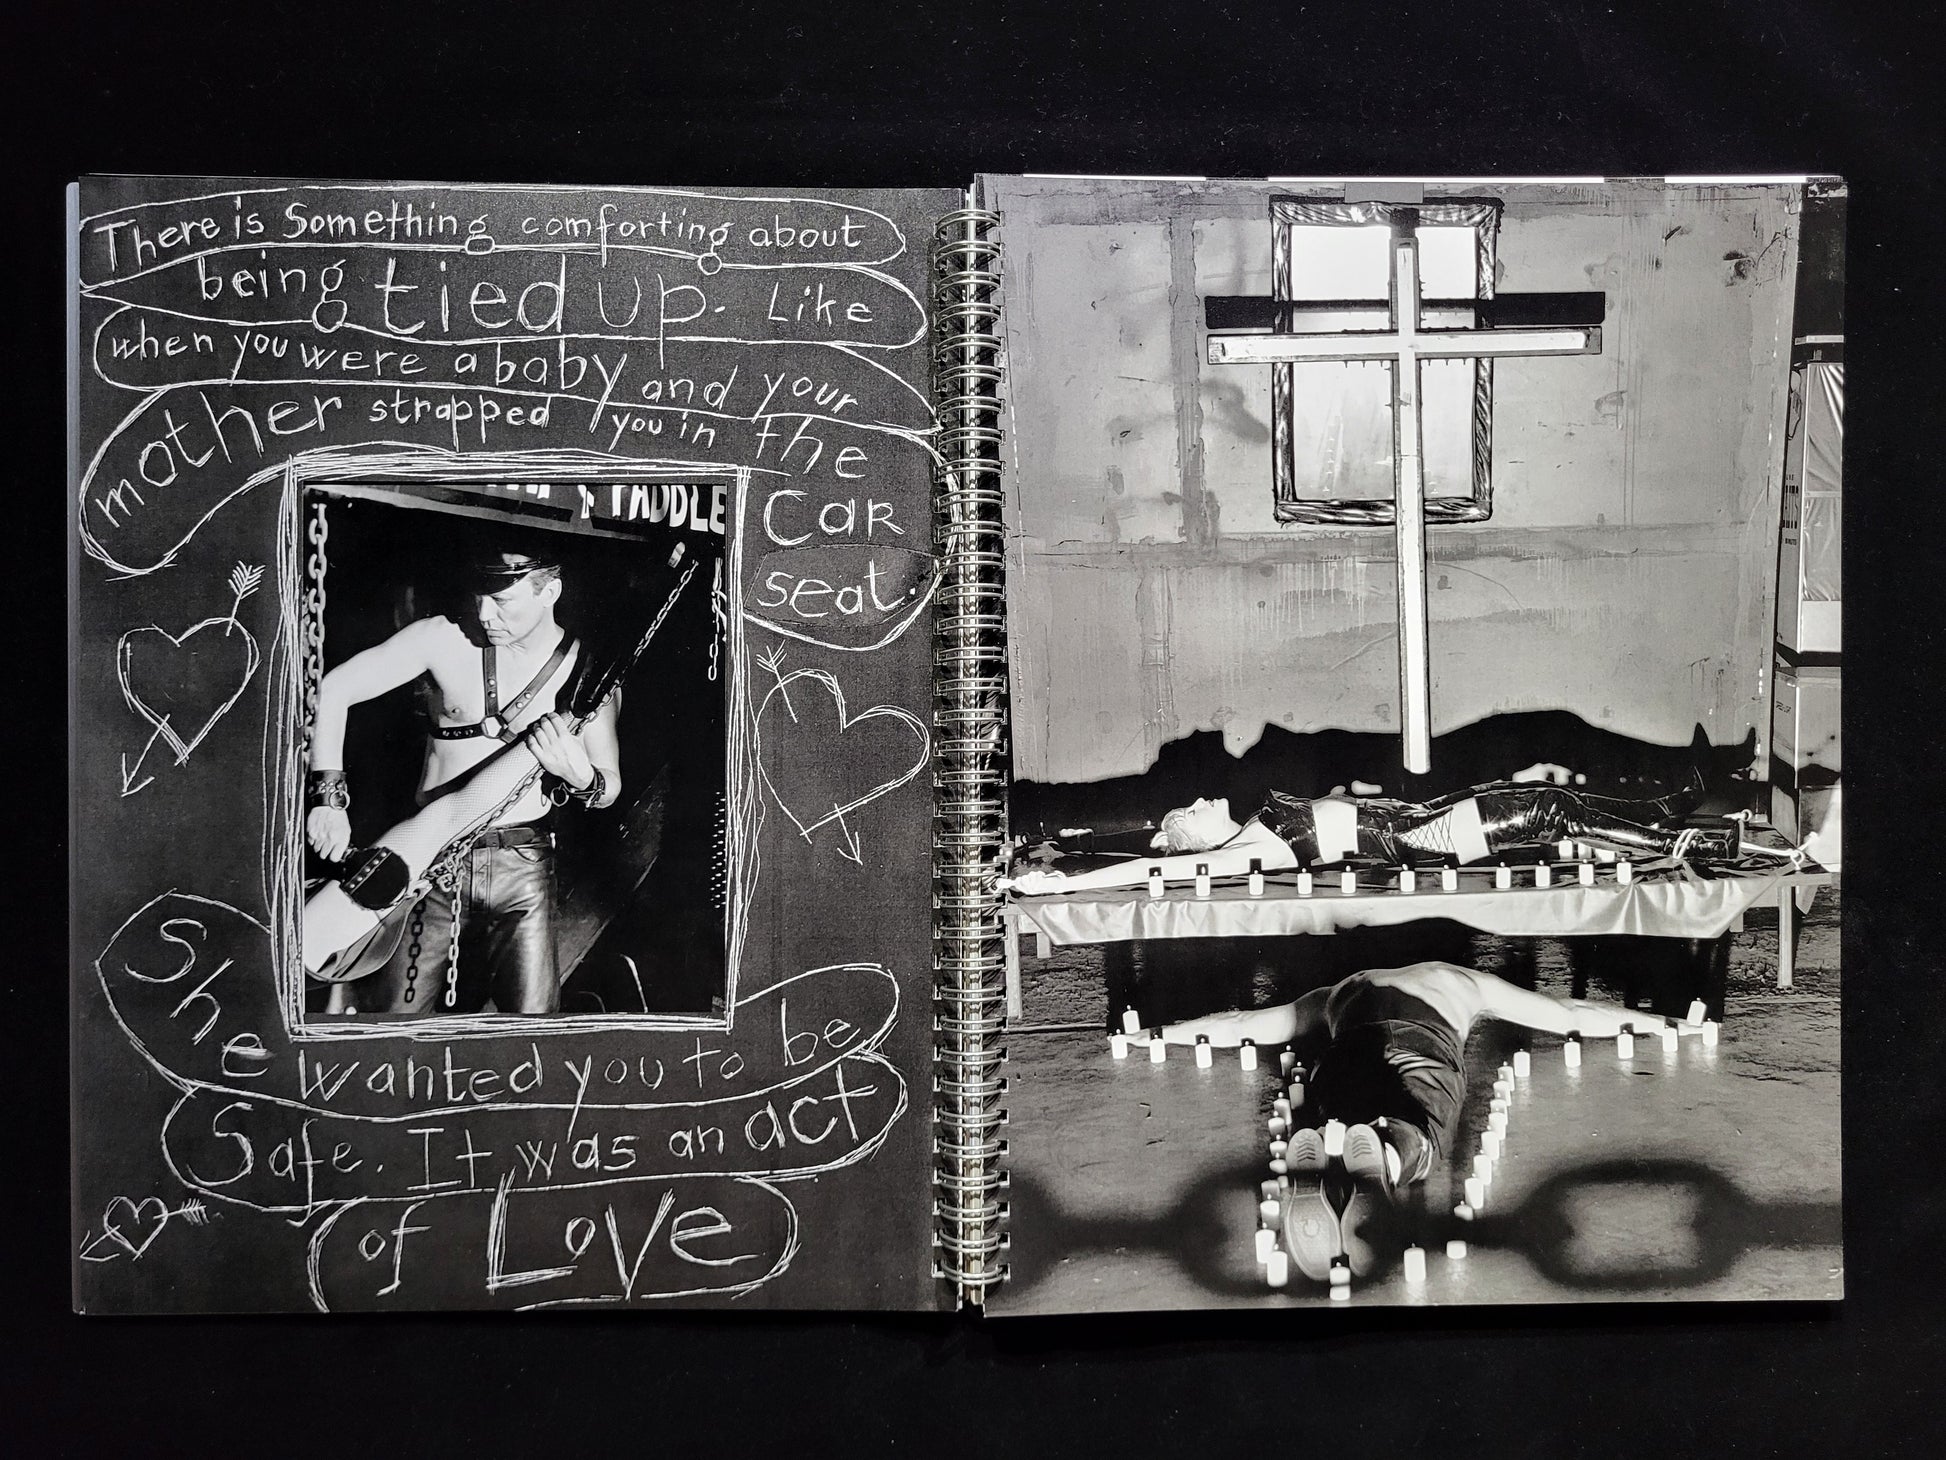 There is Something comforting about
being tied up. Like
when you were a baby and your
mother strapped you in the
Car
seat.
PADDLE
She wanted you to be
Safe. It was an act
of Love